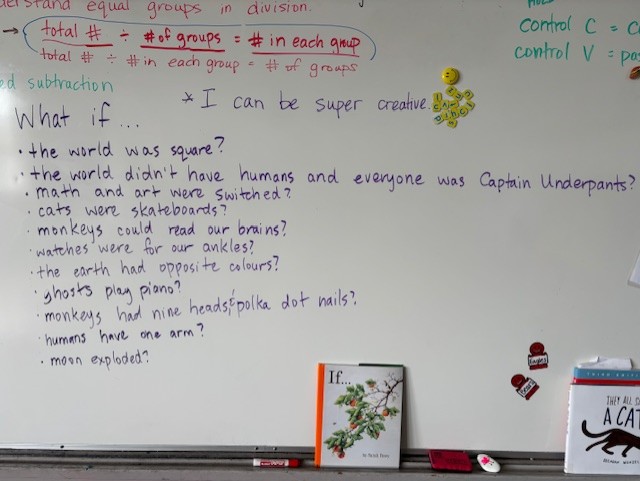 understand equal groups in division.
→ total # ÷ # of groups = # in each group
total # ÷ # in each group = # of groups
control C =
control V =
subtraction
* I can be super creative.
What if...
• the world was square?
• the world didn't have humans and everyone was Captain Underpants?
• math and art were switched?
• cats were skateboards?
• monkeys could read our brains?
• watches were for our ankles?
• the earth had opposite colours?
• ghosts play piano?
• monkeys had nine heads, & polka dot nails?
• humans have one arm?
• moon exploded?
If...
by Sarah Perry
Eagles
Bears
THEY ALL
A CAT
BRENDAN